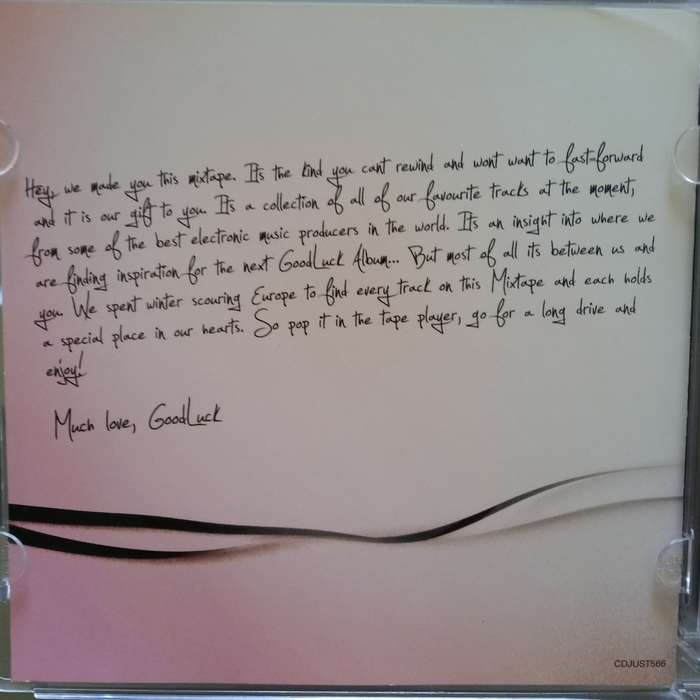 Hey, we made you this mixtape. Its the kind you cant rewind and wont want to fast-forward
and it is our gift to you. Its a collection of all of our favourite tracks at the moment,
from some of the best electronic music producers in the world. Its an insight into where we
are finding inspiration for the next GoodLuck Album... But most of all its between us and
you. We spent winter scouring Europe to find every track on this Mixtape and each holds
a special place in our hearts. So pop it in the tape player, go for a long drive and
enjoy!
Much love, GoodLuck
CDJUST566